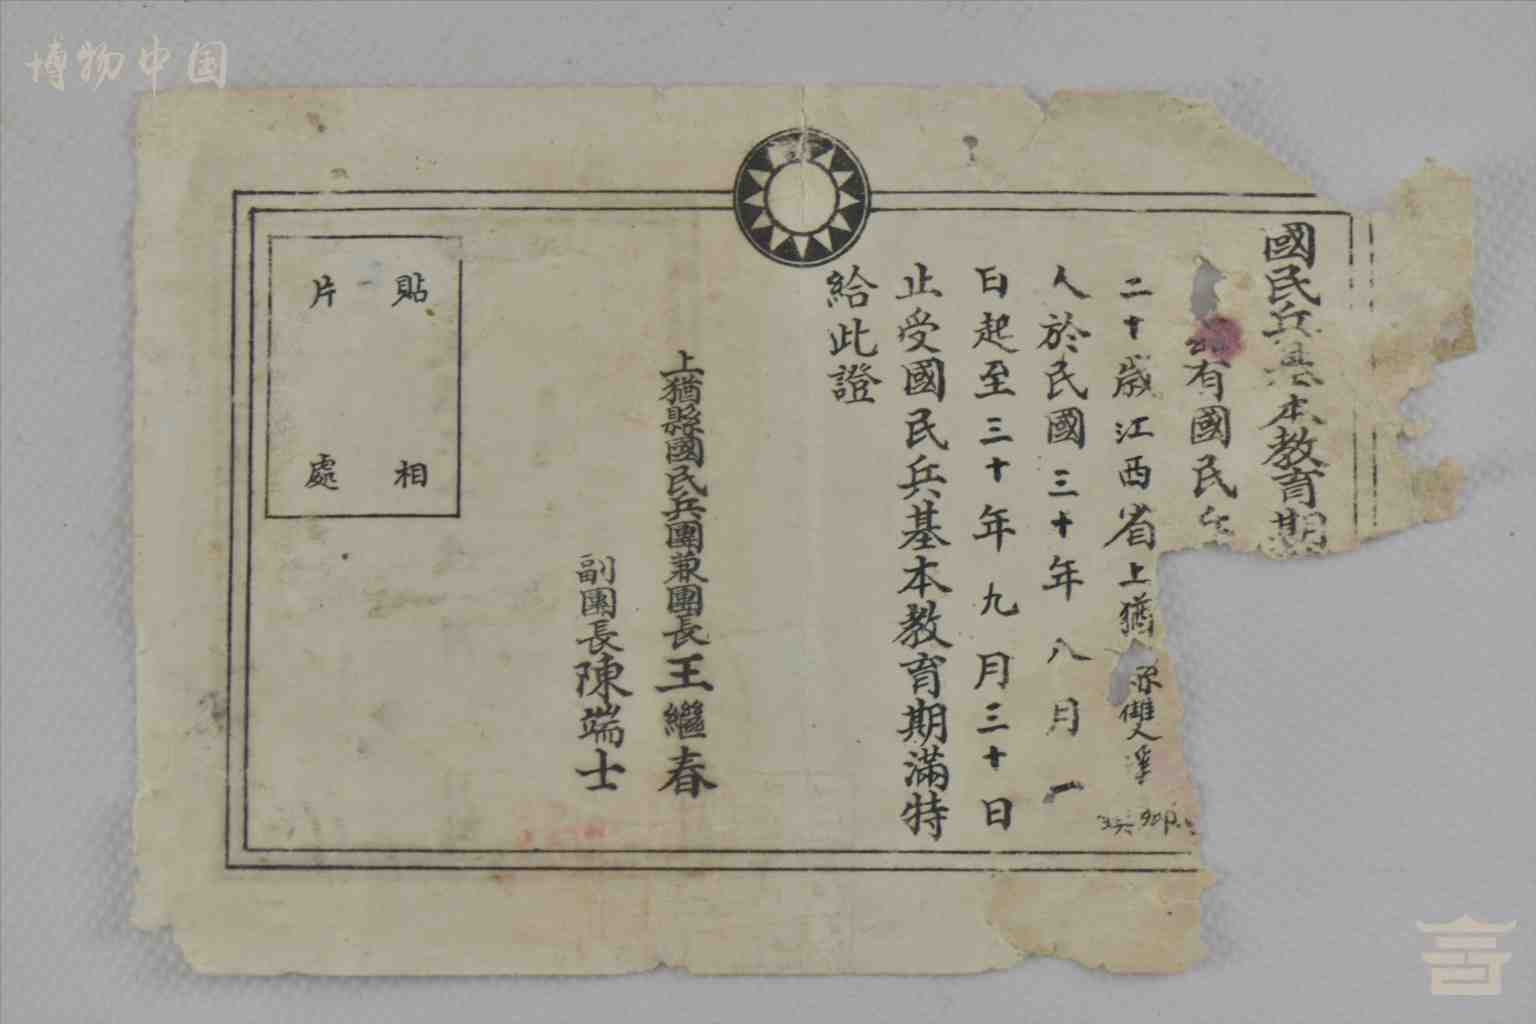 博物中国
國民兵基本教育期
有國民兵
二十歲江西省上猶 雙溪
人於民國三十年八月一
日起至三十年九月三十日
止受國民兵基本教育期滿特
給此證
上猶縣國民兵團兼團長王繼春
副團長陳端士
貼相
片處